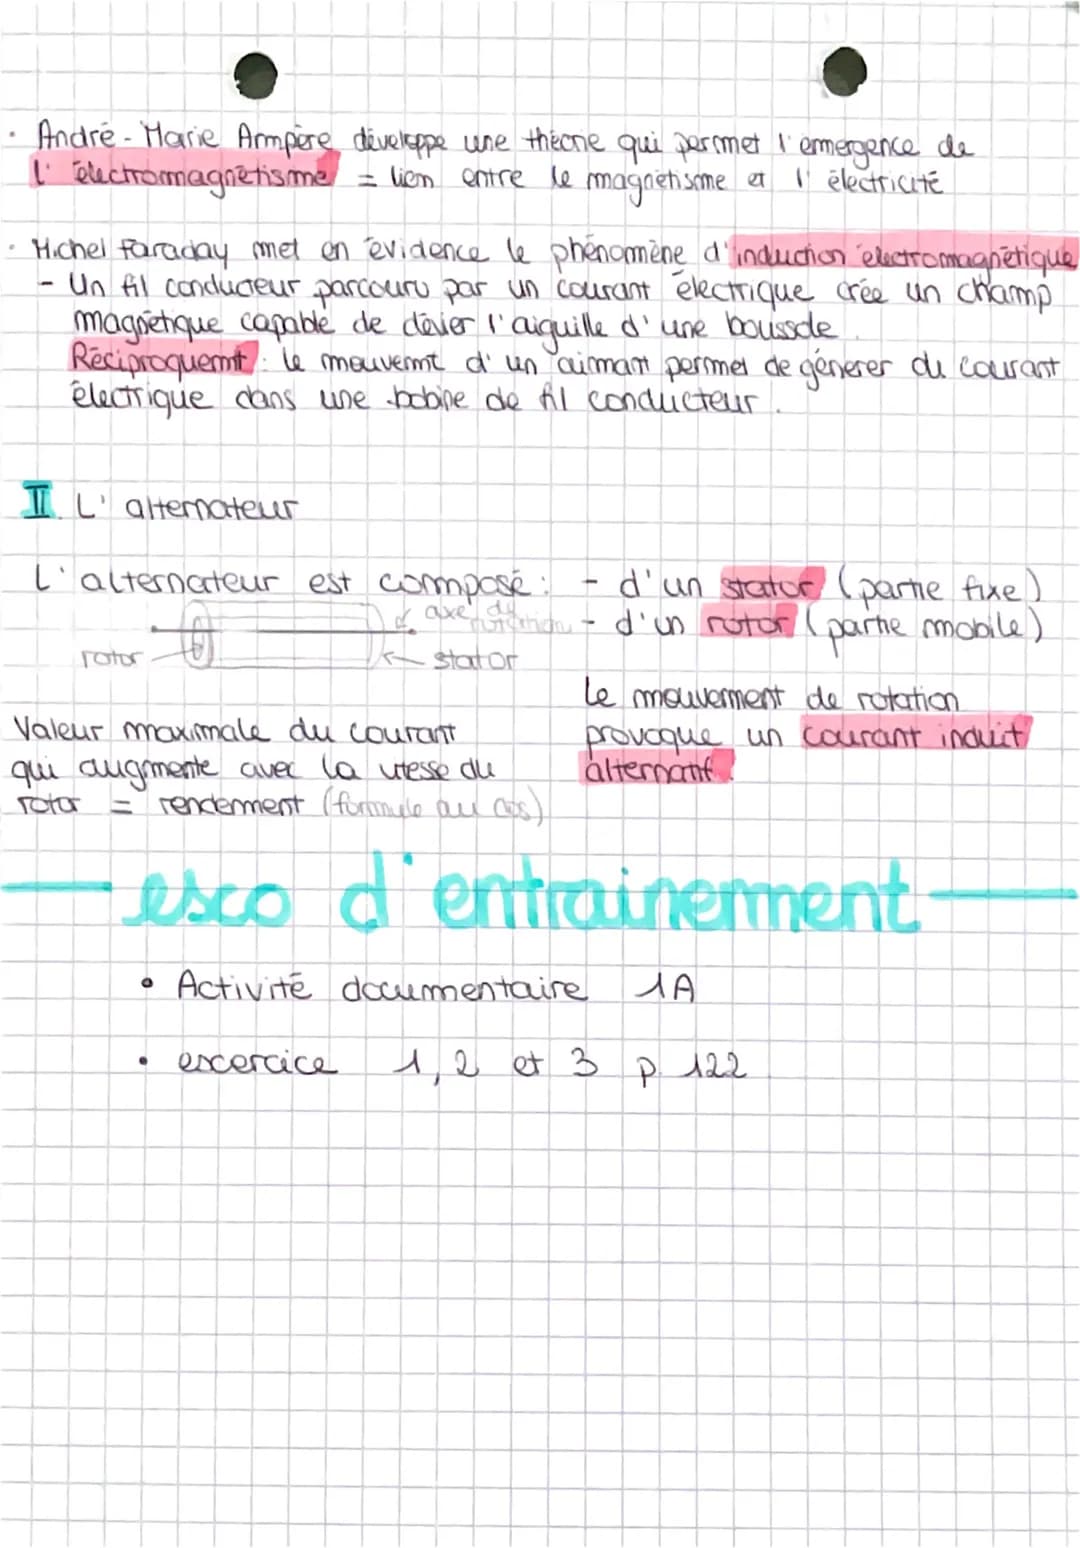 • André-Marie Ampère développe une théorie qui permet l'émergence de
l'électromagnétisme = lien entre le magnétisme et l'électricité
• Michel Faraday met en évidence le phénomène d'induction électromagnétique
- Un fil conducteur parcouru par un courant électrique crée un champ
magnétique capable de dévier l'aiguille d'une boussole.
Réciproquemt : le mouvemt d'un aimant permet de génerer du courant
électrique dans une bobine de fil conducteur.
II. L'alternateur
L'alternateur est composé : - d'un stator (partie fixe)
axe de rotation - d'un rotor (partie mobile)
rotor
stator
Le mouvement de rotation
provoque un courant induit
alternatif.
Valeur maximale du courant
qui augmente avec la vitesse du
rotor = rendement (formule au dos)
exo d'entrainement
• Activité documentaire 1A
• excercice 1, 2 et 3 p. 122